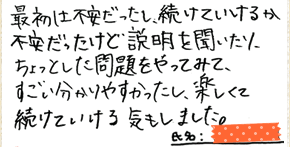 最初は不安だったし、続けていけるか
不安だったけど説明を聞いたり、
ちょっとした問題をやってみて、
すごい分かりやすかったし、楽しくて
続けていける気もしました。
氏名: